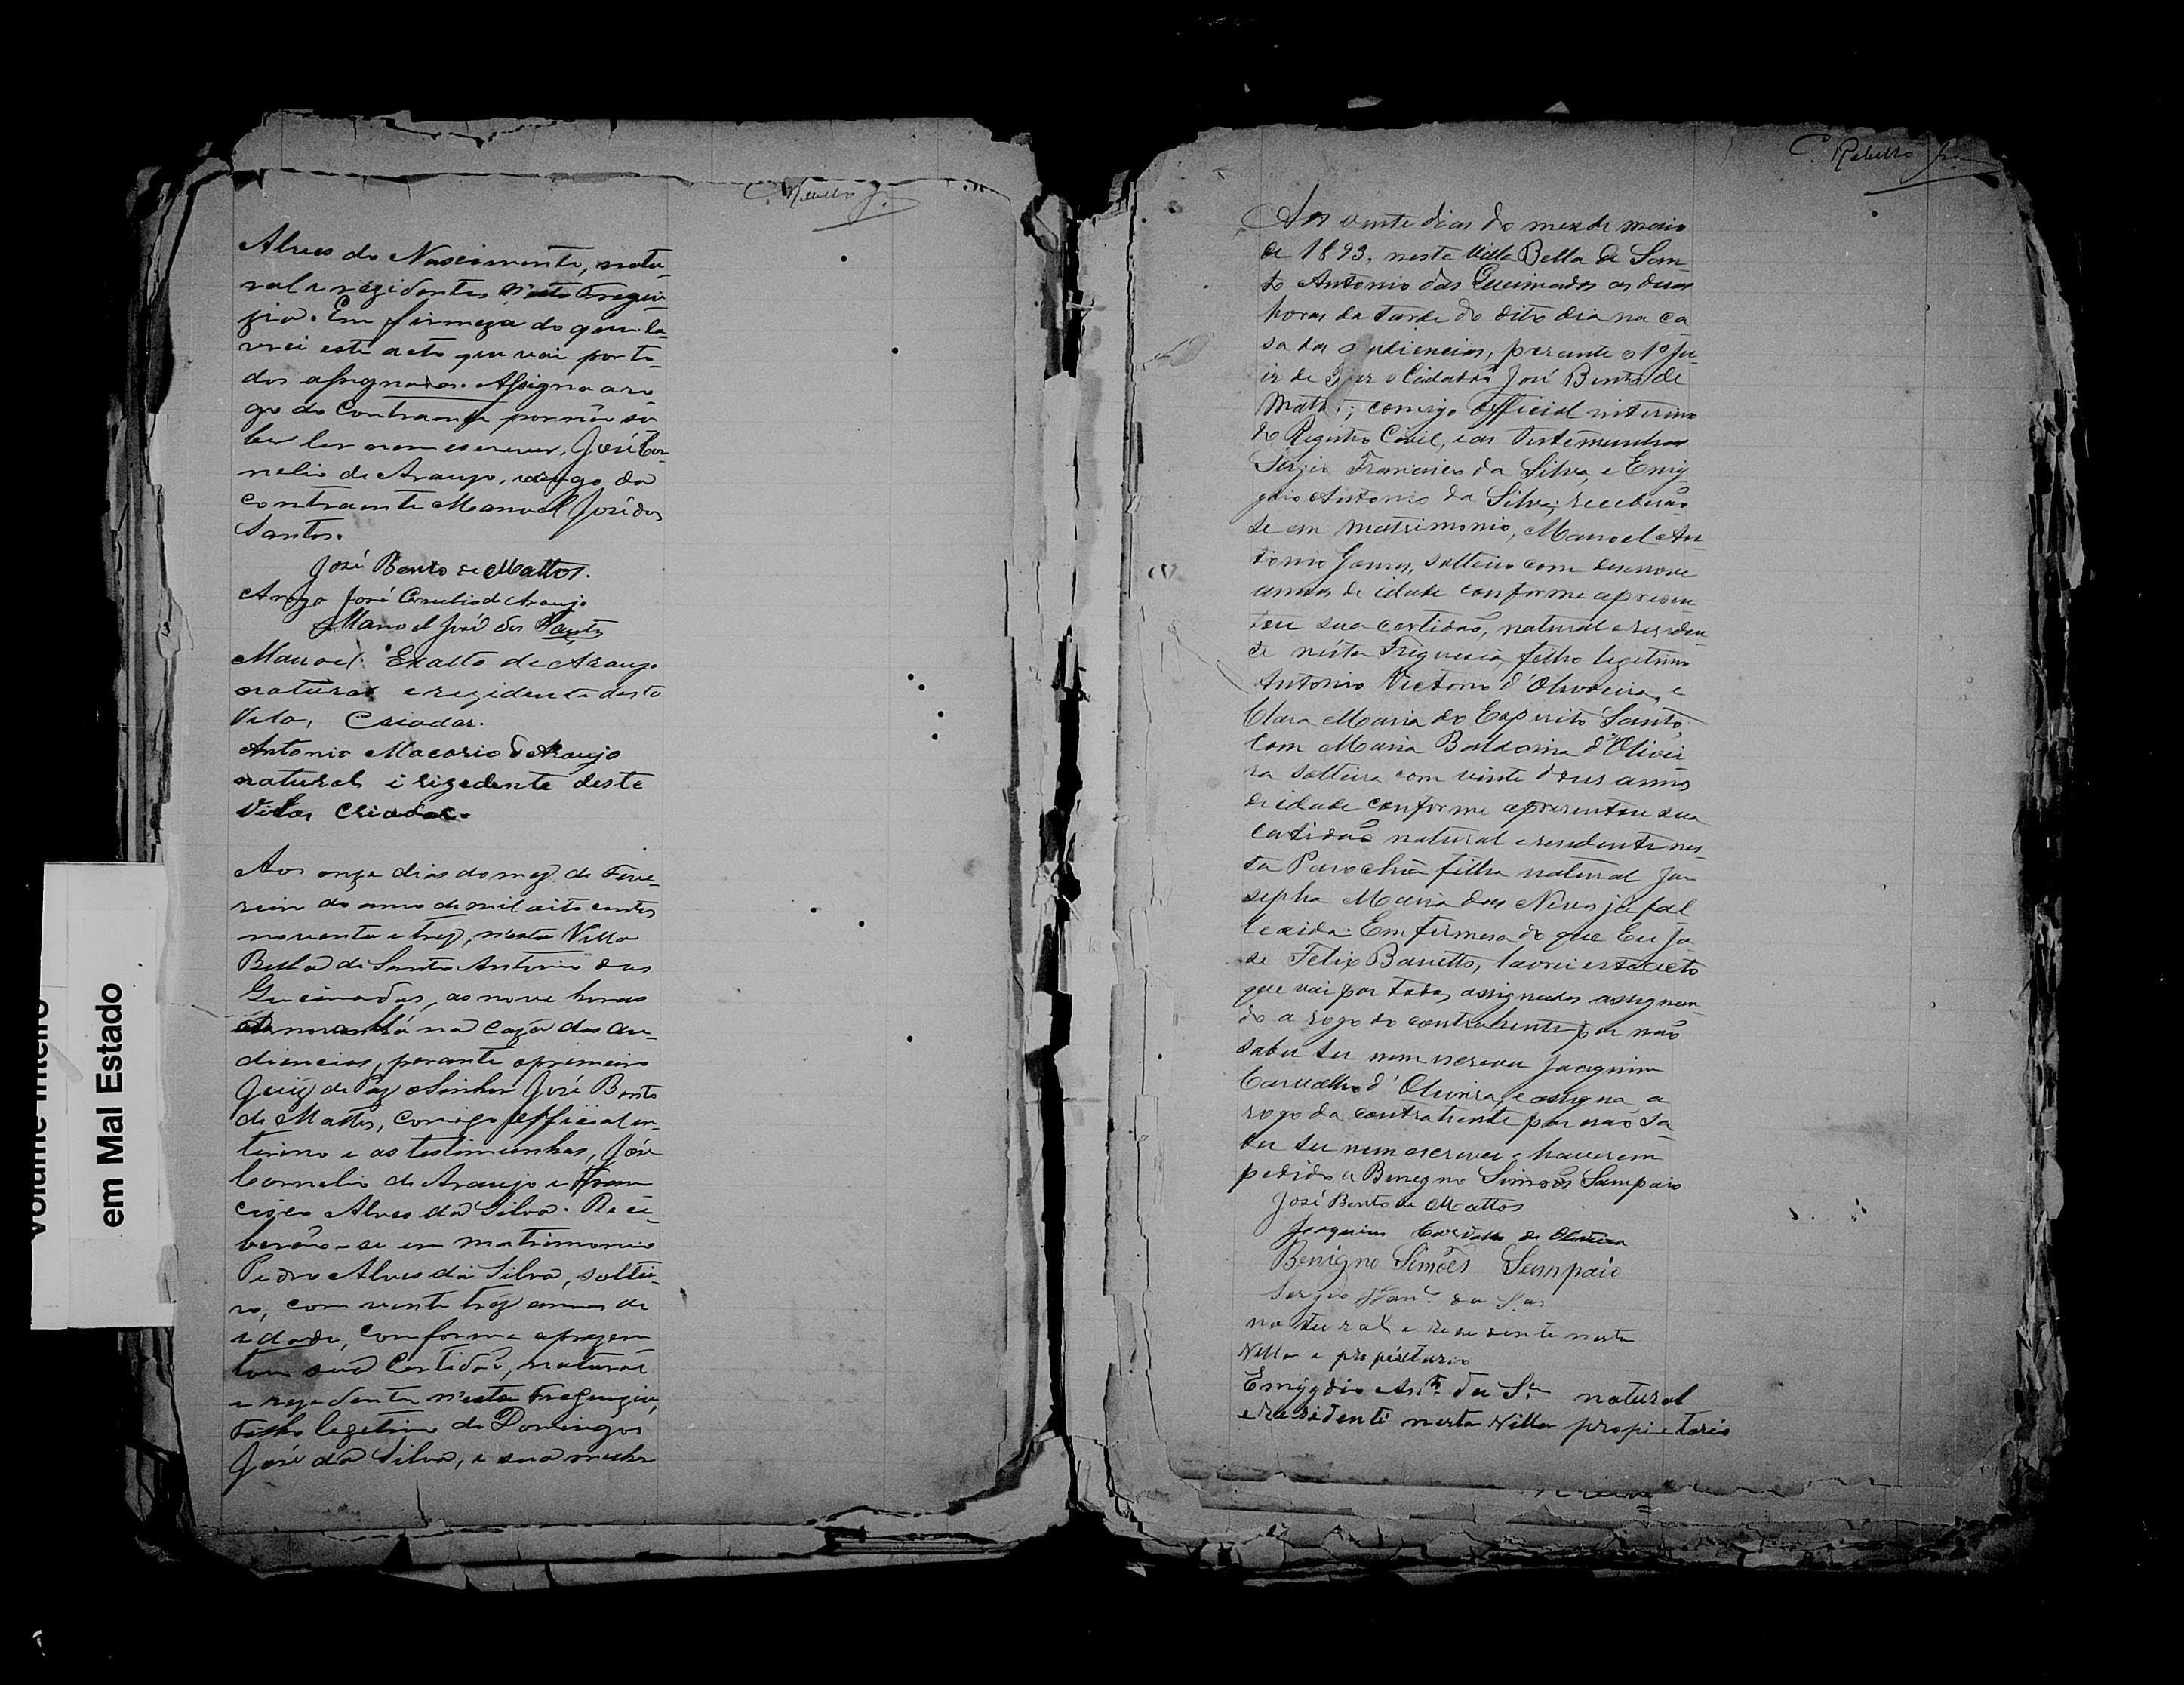 Volume Inteiro
em Mal Estado
C. Rebello Jr.
Alves do Nascimento, natu-
ral e rezidentes n'esta Fregue-
zia. Em firmeza do que la-
vrei este acto que vai por to-
dos assignados. Assigna a ro-
go do Contraente por não sa-
ber ler nem escrever, José Cor-
nelio de Araujo, rogo da
contraente Manoel José dos
Santos.
José Bento de Mattos.
A rogo José Cornelio de Araujo
Manoel José dos Santos
Manoel Exalto de Araujo
natural e rezidente desta
Vila, Criador.
Antonio Macario de Araujo
natural i rizedente desta
Vila, Criador.
Aos onze dias do mez de Feve-
reiro do anno de mil oito centos
noventa e trez, n'esta Villa
Bella de Santo Antonio das
Queimadas, as nove horas
da manhã na caza das au-
diencias, perante o primeiro
Juiz de Paz o Senhor José Bento
de Mattos, comigo official in-
terino e as testimunhas, José
Cornelio de Araujo e Fran-
cisco Alves da Silva. Rece-
berão-se em matrimonio
Pedro Alves da Silva, soltei-
ro, com vente trez annos de
idade, conforme aprezen
tou sua Certidão, natural
e rezedente n'esta Freguezia,
Filho legitimo de Domingos
José da Silva, e sua mulher
C. Rebello Jr.
Aos vinte dias do mez de maio
de 1893, nesta Villa Bella de San-
to Antonio das Queimadas as duas
horas da tarde do dito dia na ca
sa das audiencias, perante o 1º Ju-
iz de Paz o Cidadão José Bento de
Mattos; comigo official interino
do Registro Civil, e as testemunhas
Sergio Francisco da Silva, e Emy
gdio Antonio da Silva; receberão
se em matrimonio, Manoel An-
tonio Gomes, solteiro com desenove
annos de idade conforme apresen
tou sua certidão, natural e residen
te nésta Freguesia, filho legitimo
Antonio Victorio d'Oliveira, e
Clara Maria do Espirito Santo,
com Maria Baldoina d'Olivei
ra solteira com vinte dous annos
de idade conforme apresentou sua
certidão natural e residente nes-
ta Parochia filha natural Jo
sepha Maria das Neves já fal
lecida. Em firmesa do que Eu Jo
se Felix Barretto, lavrei este acto
que vai por todos assignados assignan
do a rogo do contrahente por não
saber ler nem escrever Joaquim
Carvalho d'Oliveira, e assigna a
rogo da contrahente por não sa
ber ler nem escrever e haverem
pedido a Benegno Simões Sampaio
José Bento de Mattos
Joaquim Carvalho de Oliveira
Benigno Simões Sampaio
Sergio Franco da Sa
natural e residente nesta
Villa e propiétario
Emygdio Anto da Sa natural
e residente nesta Villa propietario